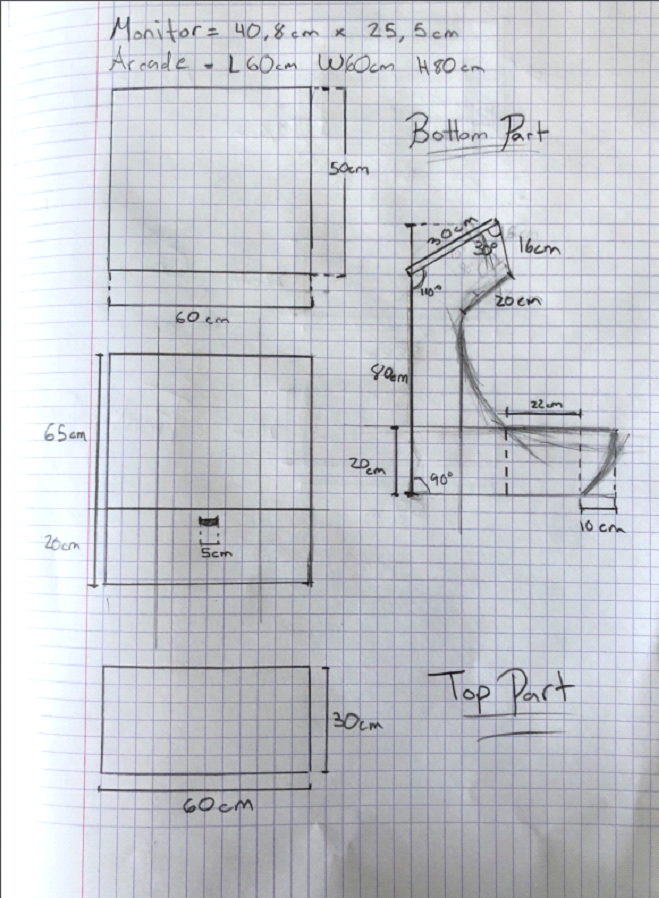 Monitor = 40,8cm x 25,5cm
Arcade - L60cm W60cm H80cm
Bottom Part
50cm
60cm
30cm
30°
16cm
110°
20cm
80cm
22cm
20cm
90°
10cm
65cm
20cm
5cm
Top Part
30cm
60cm